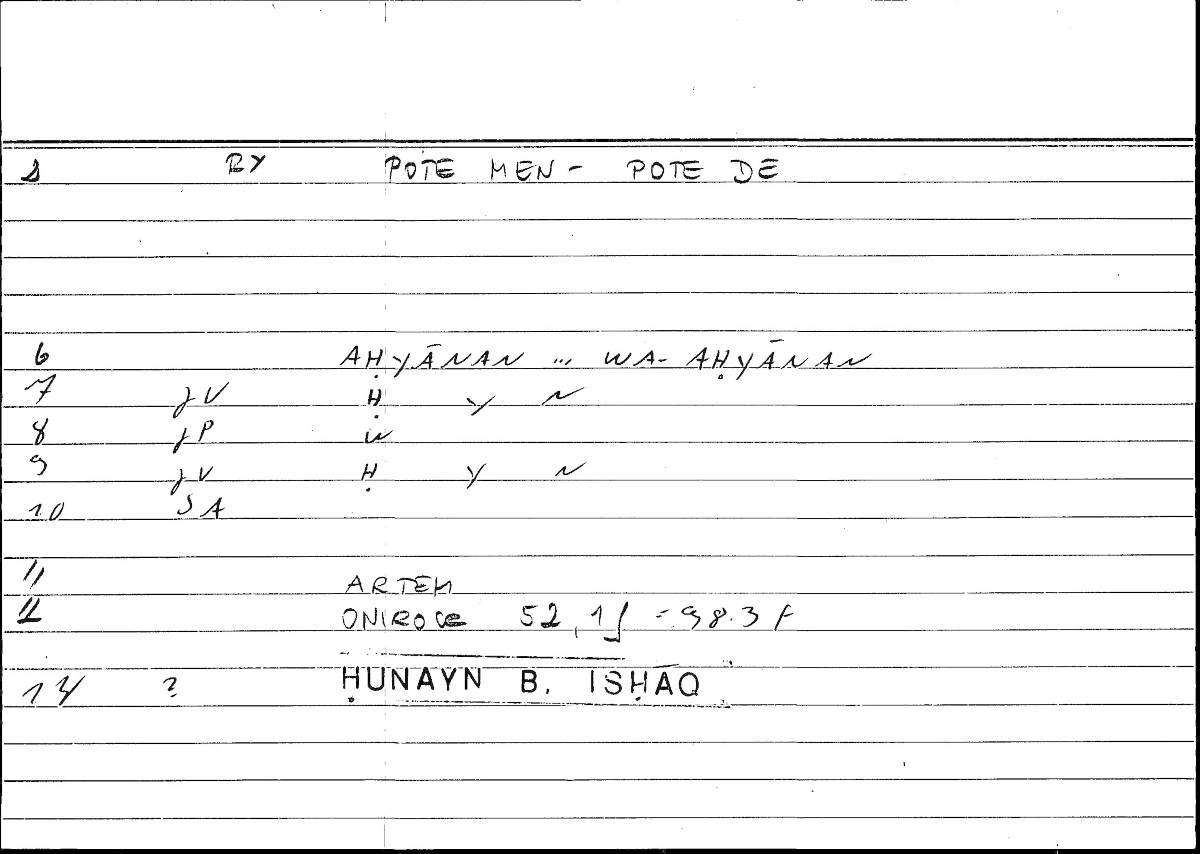 1 RY POTE MEN - POTE DE
6 AḤYĀNAN ... WA- AḤYĀNAN
7 JV Ḥ Y N
8 JP W
9 JV Ḥ Y N
10 SA
11 ARTEM
12 ONIROCR 52,1 = 98.3 f
14 ? ḤUNAYN B. ISḤĀQ